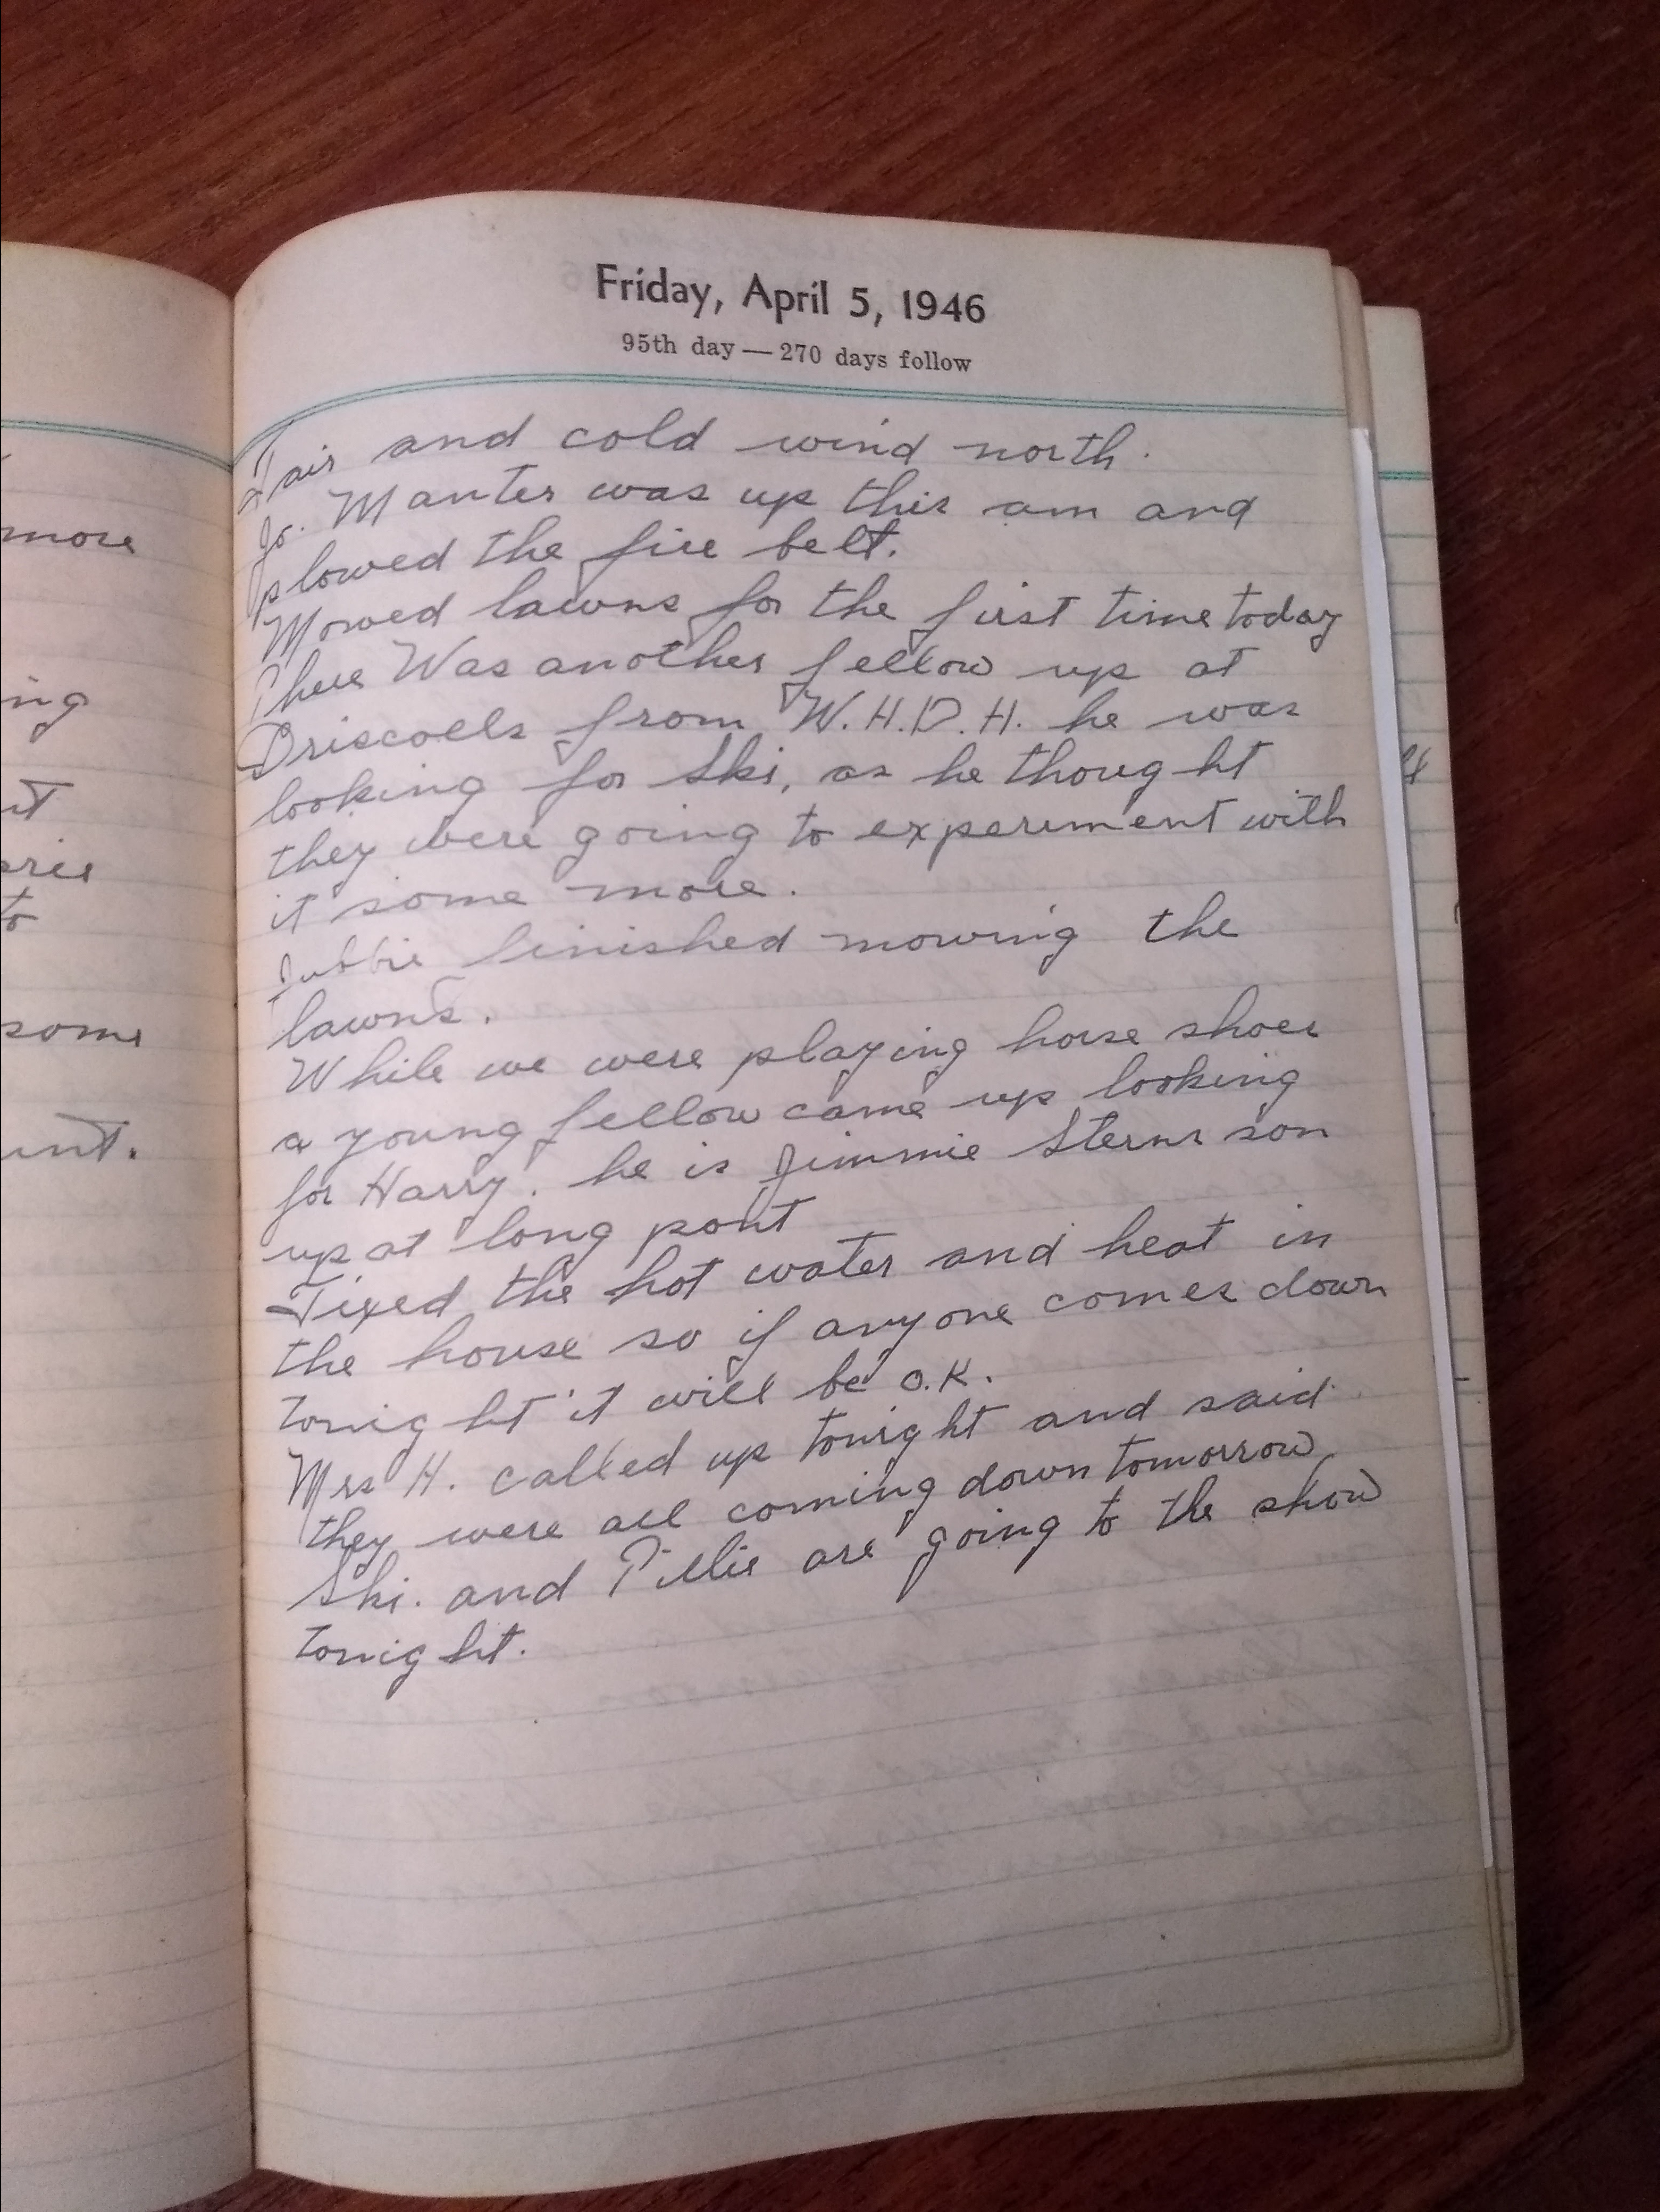 more
ing
some
Friday, April 5, 1946
95th day — 270 days follow
Fair and cold wind north.
Jo. Manter was up this am and
plowed the fire belt.
Mowed lawns for the first time today
There Was another fellow up at
Driscolls from W.H.D.H. he was
looking for Ski, as he thought
they were going to experement with
it some more.
finished mowing the
lawns.
While we were playing horse shoes
a young fellow came up looking
for Harry. he is Jimmie Sterns son
up at long pont
Fixed the hot water and heat in
the house so if anyone comes down
tonight it will be O.K.
Mrs H. called up tonight and said
they were all coming down tomorrow
Ski. and Tillie are going to the show
tonight.